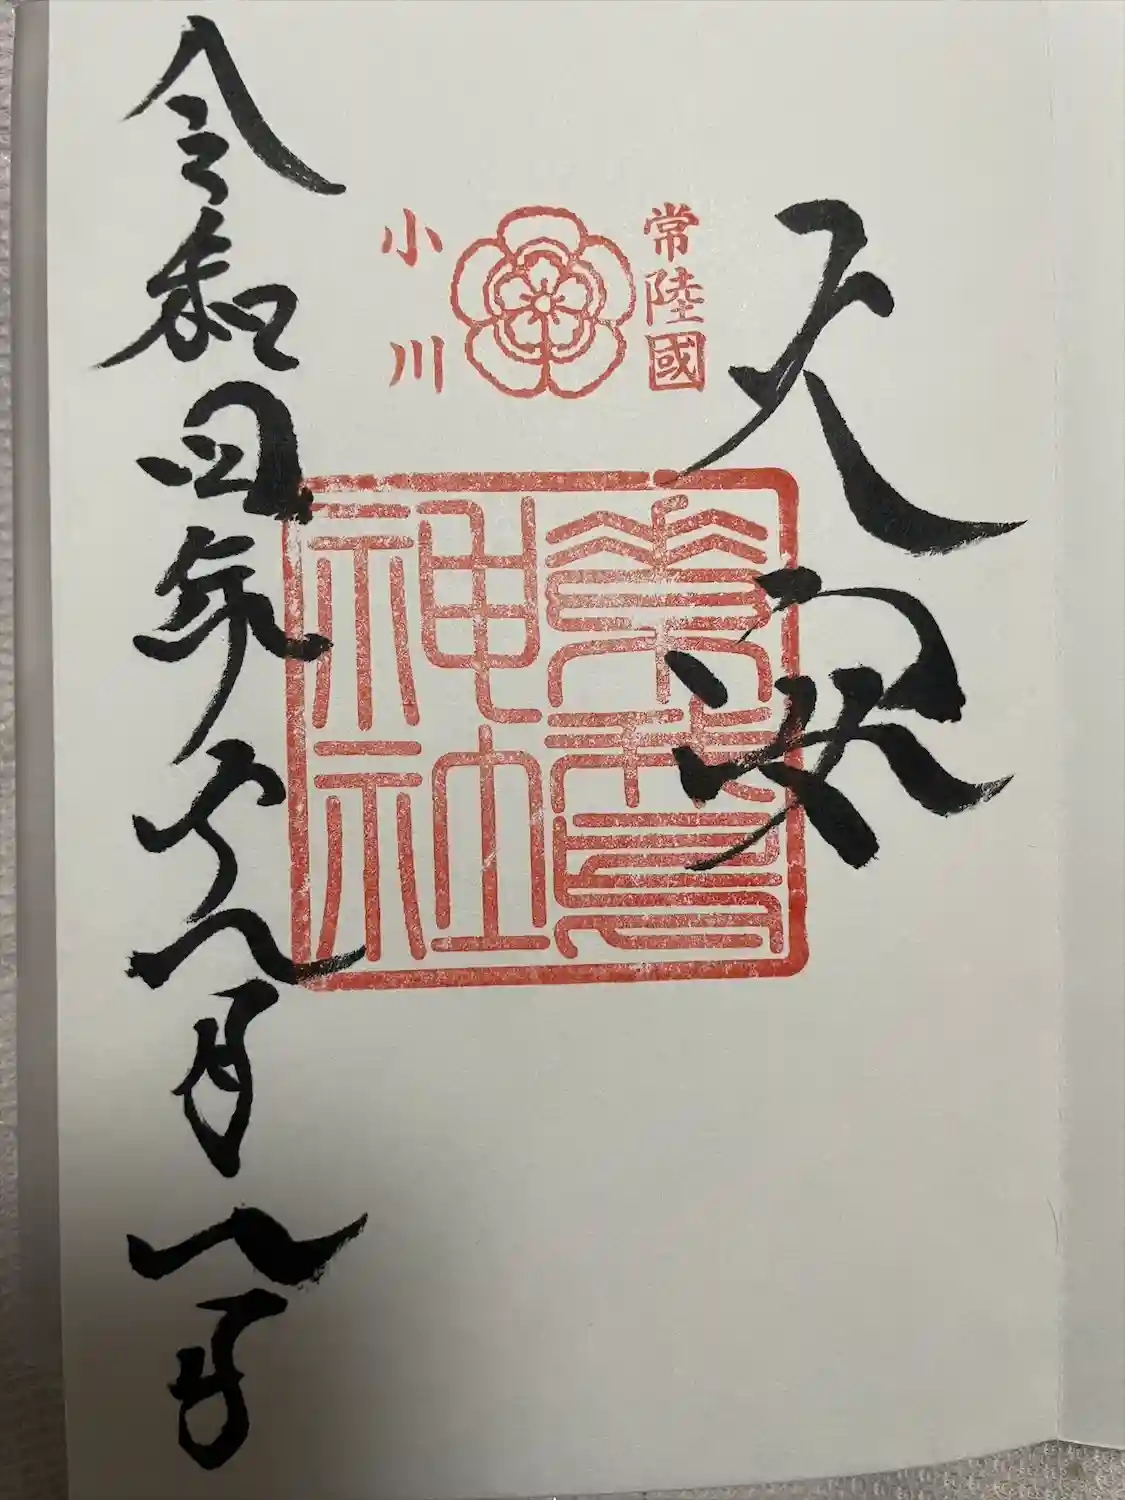 天安
常陸國
小川
素鵞
神社
令和四年六月八日